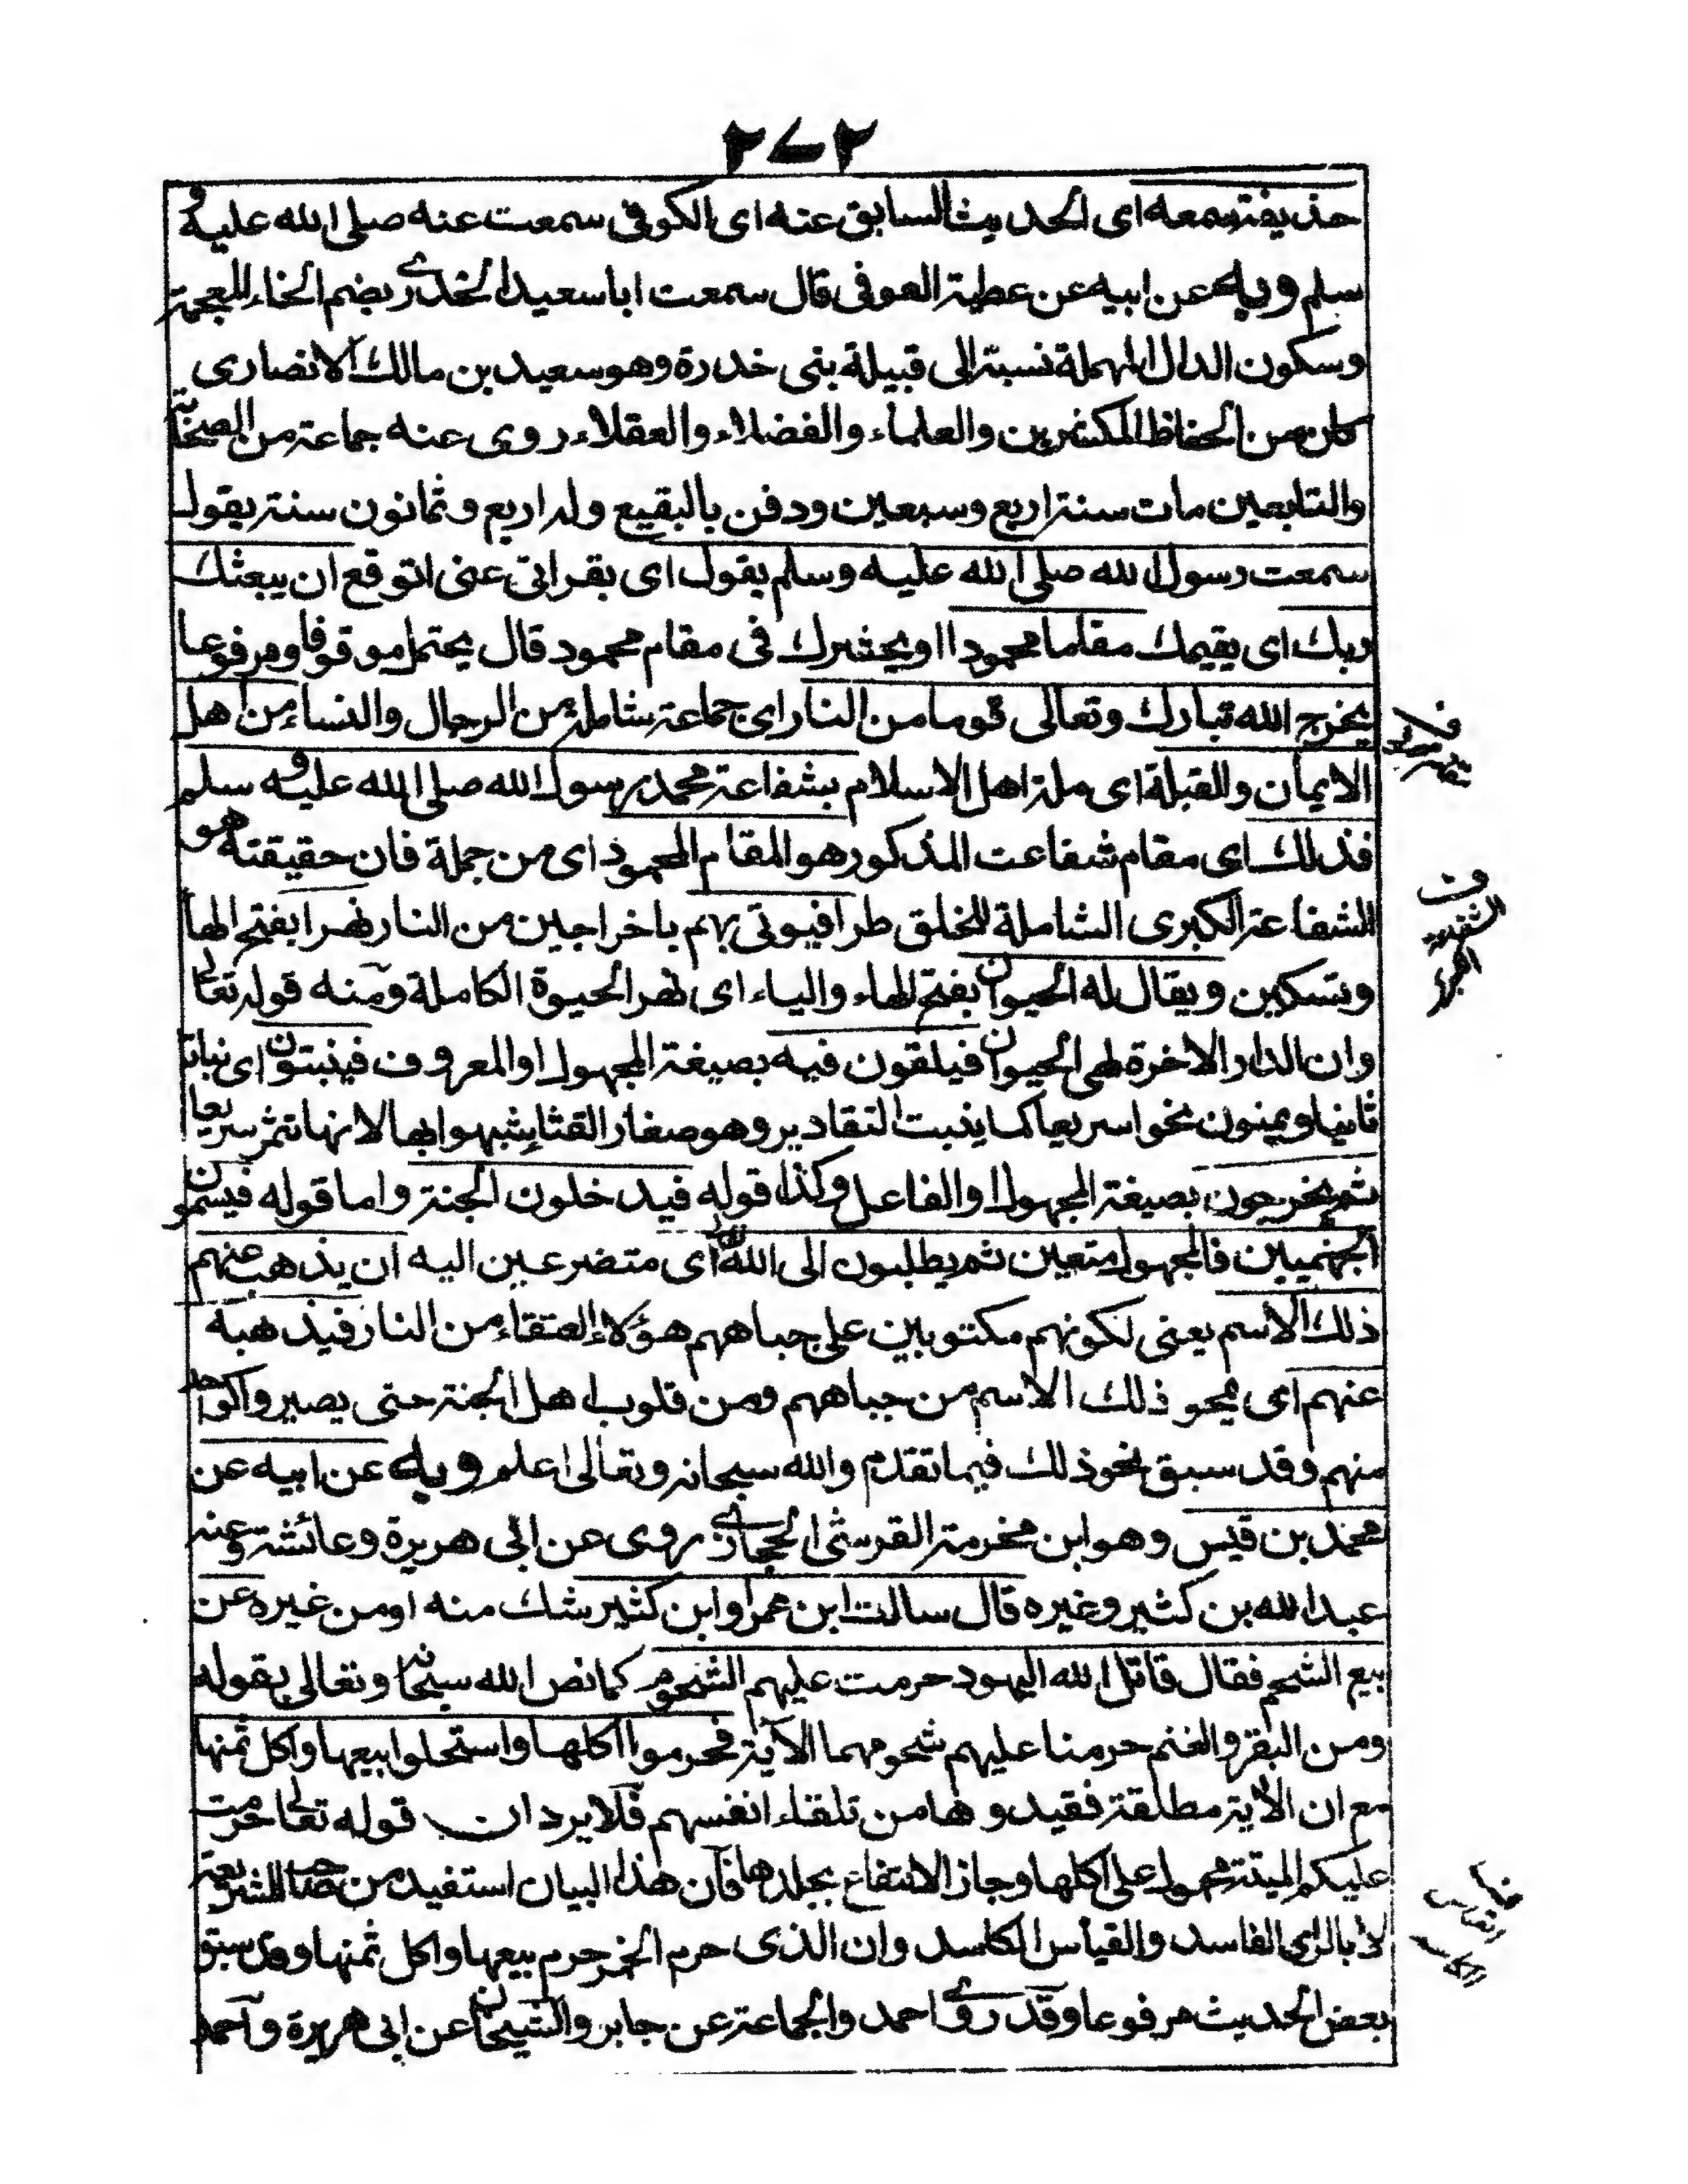 ٢٧٢
حذيفة سمعه اى الحديث السابق عنه اى الكوفى سمعت عنه صلى الله عليه و
سلم وبه عن ابيه عن عطية العوفى قال سمعت اباسعيد الخدرى بضم الخاء المعجمة
وسكون الدال المهملة نسبة الى قبيلة بنى خدرة وهو سعيد بن مالك الانصارى
كان من الحفاظ المكثرين والعلماء والفضلاء والعقلاء روى عنه جماعة من الصحابة
والتابعين مات سنة اربع وسبعين ودفن بالبقيع وله اربع وثمانون سنة يقول
سمعت رسول الله صلى الله عليه وسلم يقول اى يقرا فى عنى اتوقع ان يبعثك
ربك اى يقيمك مقاما محمودا او يحشرك فى مقام محمود قال يحتمل موقوفا ومرفوعا
يخرج الله تبارك وتعالى قوما من النار اى جماعة شاملة من الرجال والنساء من اهل
الايمان والقبلة اى ملة اهل الاسلام بشفاعة محمد رسول الله صلى الله عليه و سلم
فذلك اى مقام شفاعت المذكور هو المقام المحمود اى من جملة فان حقيقته هو
الشفاعة الكبرى الشاملة للخلق طرا فيوتى بهم باخراجين من النار نهرا بفتح الها
وبتسكين ويقال له الحيوان بفتح الهاء والياء اى نهر الحيوة الكاملة ومنه قوله تعالى
وان الدار الاخرة لهى الحيوان فيلقون فيه بصيغة المجهول او المعروف فينبتون اى نباتا
ثانيا ويمنون نحوا سريعا كما ينبت التقادير وهو صغار القثا شبهوا بها لانها تثمر سريعا
ثم يخرجون بصيغة المجهول او الفاعل وكذا قوله فيدخلون الجنة واما قوله فيسمون
الجهنميين فالمجهول متعين ثم يطلبون الى الله اى متضرعين اليه ان يذهب عنهم
ذلك الاسم يعنى لكونهم مكتوبين على جباههم هؤلاء العتقاء من النار فيذهبه
عنهم اى يمحو ذلك الاسم من جباههم ومن قلوب اهل الجنة حتى يصيروا كواحد
منهم وقد سبق نحو ذلك فيما تقدم والله سبحانه وتعالى اعلم وبه عن ابيه عن
محمد بن قيس وهو ابن مخرمة القرشى الحجازى روى عن ابى هريرة وعائشة وعنه
عبدالله بن كثير وغيره قال سالت ابن عمر او ابن كثير شك منه او من غيره عن
بيع الشحم فقال قاتل الله اليهود حرمت عليهم الشحوم كما نص الله سبحانه وتعالى بقوله
ومن البقر والغنم حرمنا عليهم شحومهما الآية فحرموا اكلها واستحلوا بيعها واكل ثمنها
مع ان الآية مطلقة فقيدوها من تلقاء انفسهم فلا يرد ان قوله تعالى حرمت
عليكم الميتة محمول على اكلها وجاز الانتفاع بجلدها فان هذا البيان استفيد من صاحب الشريعة
لا بالراى الفاسد والقياس الكاسد وان الذى حرم الخمر حرم بيعها واكل ثمنها وقد سبق
بعض الحديث مرفوعا وقد روى احمد والجماعة عن جابر والشيخان عن ابى هريرة واحمد